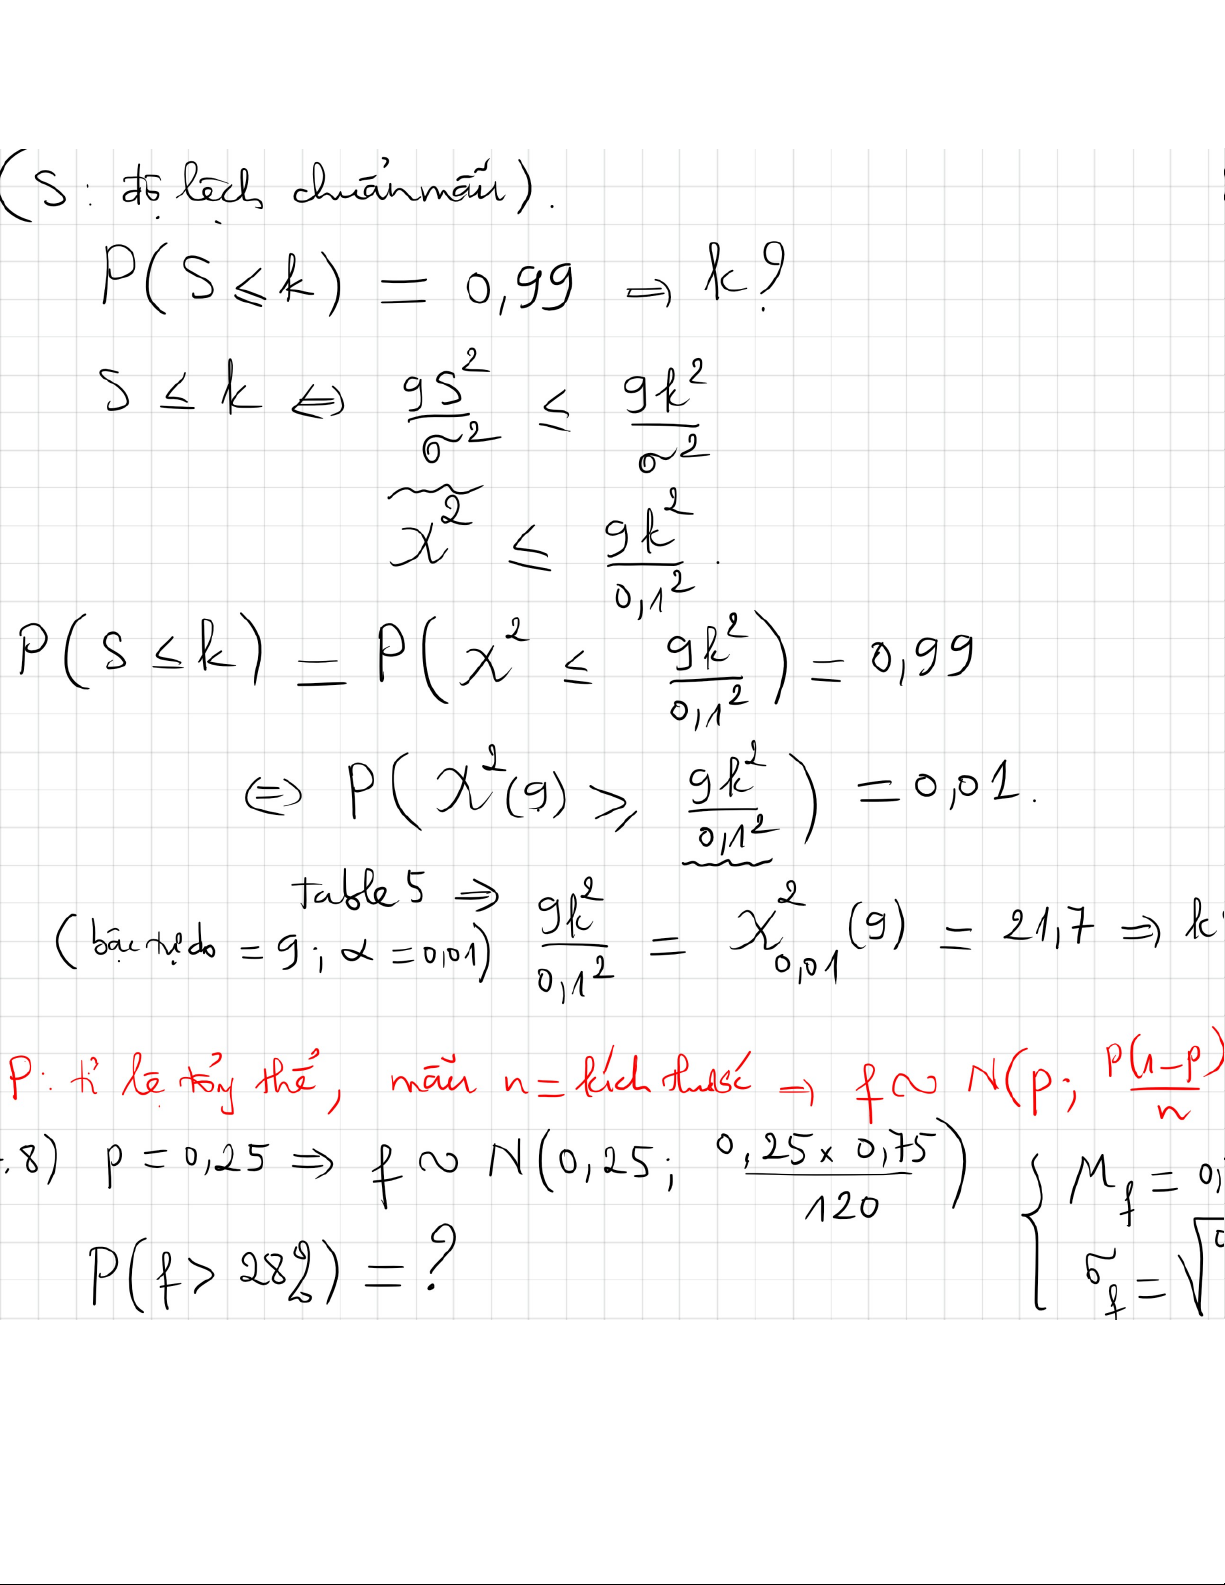 (S: độ lệch chuẩn mẫu).
P(S ≤ k) = 0,99 ⇒ k?
S ≤ k ⇔ 9S²/σ² ≤ 9k²/σ²
χ² ≤ 9k²/0,1².
P(S ≤ k) = P(χ² ≤ 9k²/0,1²) = 0,99
⇔ P(χ²(9) ≥ 9k²/0,1²) = 0,01.
table 5 ⇒ 9k²/0,1² = χ²0,01(9) = 21,7 ⇒ k
(bậc tự do = 9; α = 0,01)
P: tỉ lệ tổng thể, mẫu n = kích thước ⇒ f ~ N(p; p(1-p)/n
.8) p = 0,25 ⇒ f ~ N(0,25; 0,25 x 0,75/120) { μf = 0,
P(f > 28%) = ? σf = √